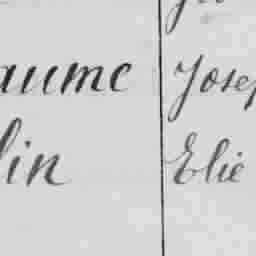 aume Josep
lin Elie